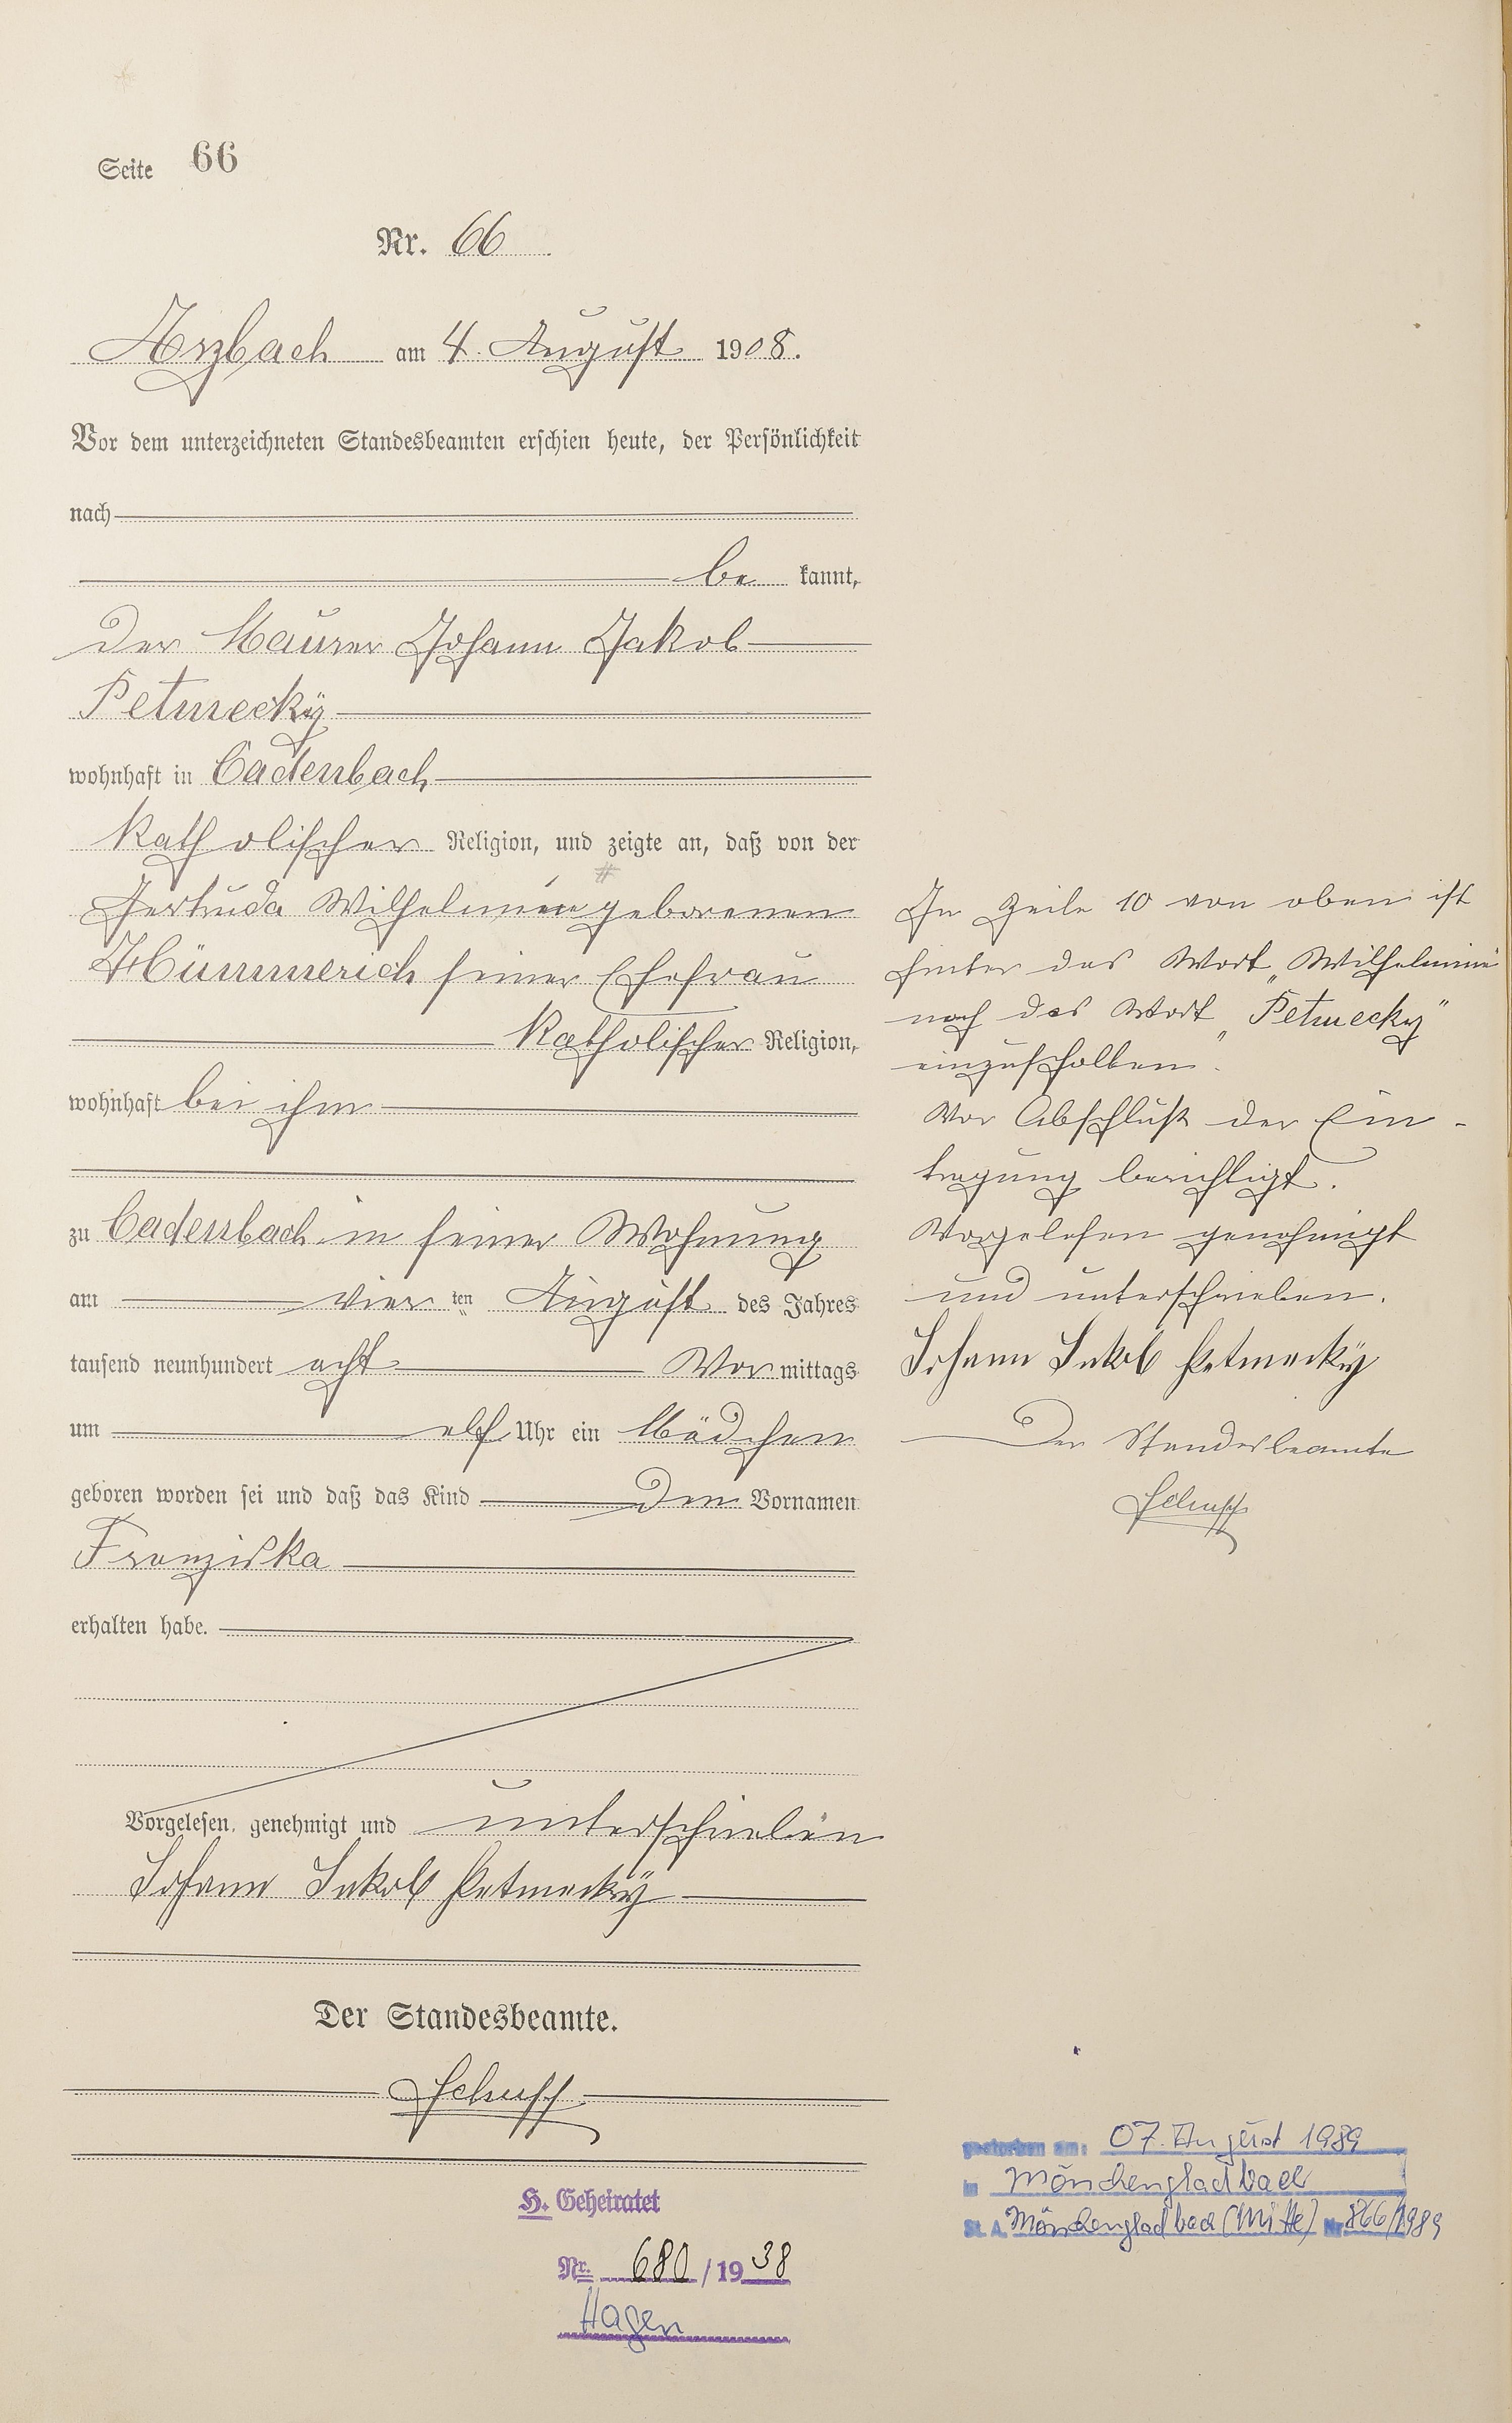 Seite 66
Nr. 66
Arzbach am 4. August 1908.
Vor dem unterzeichneten Standesbeamten erschien heute, der Persönlichkeit
nach
be kannt,
der Maurer Johann Jakob
Petmecky
wohnhaft in Cadenbach
katholischer Religion, und zeigte an, daß von der
#
Gertruda Wilhelmine geborenen
Hümmerich seiner Ehefrau
katholischer Religion,
wohnhaft bei ihm
zu Cadenbach in seiner Wohnung
am vier ten August des Jahres
tausend neunhundert acht Vor mittags
um elf Uhr ein Mädchen
geboren worden sei und daß das Kind den Vornamen
Franziska
erhalten habe.
Vorgelesen, genehmigt und unterschrieben
Johann Jakob Petmecky
Der Standesbeamte.
H. Geheiratet
Nr. 680 / 19 38
Hagen
In Zeile 10 von oben ist
hinter das Wort „Wilhelmine
noch das Wort „Petmecky"
einzuschalten".
Vor Abschluß der Ein-
tragung berichtigt.
Vorgelesen genehmigt
und unterschrieben.
Johann Jakob Petmecky
Der Standesbeamte
gestorben am: 07. August 1989
in Mönchengladbach
St. A. Mönchengladbach (Mitte) Nr. 866/1989